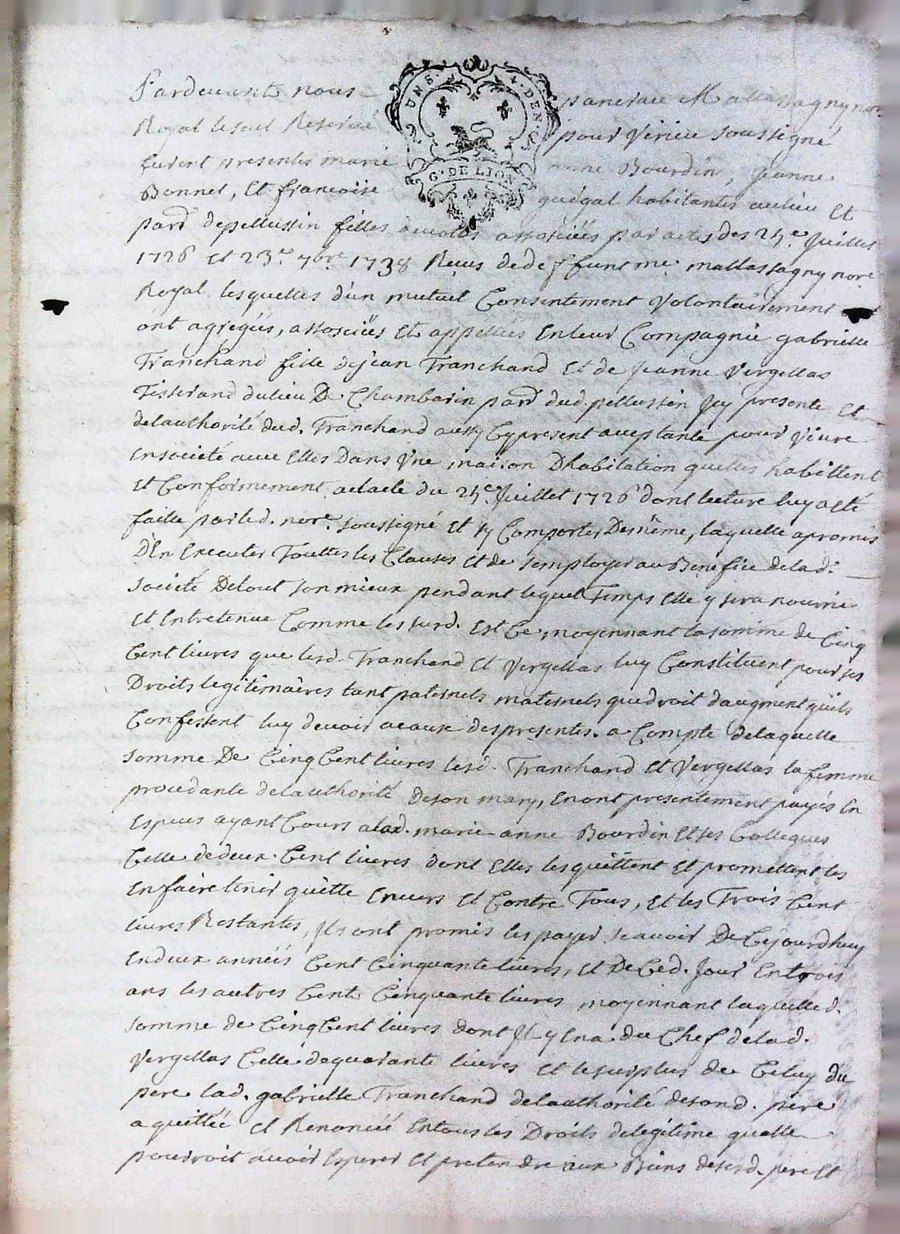 Pardevant nous pancrace Mallassagny nore.
Royal le seul Reservé pour Virieu soussigné
furent presentes marie anne Bourdin, Jeanne
Bonnet, Et francoise quégal habitantes au lieu Et
parr. de pellussin filles devotes associées par actes des 24e. Juillet
1726 et 23e. 7bre. 1738 Reçus de deffunt me. mallassagny nore.
Royal lesquelles d'un mutuel Consentement Volontairement
ont agregés, associés Et appellées En leur Compagnie gabrielle
Tranchand fille de jean Tranchand Et de Jeanne Vergellas
Tisserand du lieu De Chambarin parr. dud. pellussin Icy presente Et
de lauthorité dud. Tranchand aussy Cy present aceptante pour Vivre
En société avec Elles Dans Vne maison Dhabitation quelles habittent
Et Conformement a lacte du 24e. Juillet 1726 dont lecture luy a eté
faitte par led. nore. soussigné Et sy Comporter De même, laquelle a promis
D'En Executer Touttes les Clauses Et de semployer au Benefice de lad.
société De tout son mieux pendant lequel Temps Elle y sera nourrie
Et Entretenue Comme les susd. Est Ce, moyennant la somme de Cinq
Cent livres que lesd. Tranchand Et Vergellas luy Constituent pour ses
Droits legitimaires tant paternels maternels que droit daugment quils
Confessent luy devoir a Caux des presentes. a Compte de laquelle
somme De Cinq Cent livres lesd. Tranchand Et Vergellas la femme
procedante de lauthorité De son mary, En ont presentement payés En
Especes ayant Cours a lad. marie anne Bourdin Et ses Collegues
Celle de deux Cent livres dont Elles les quittent Et promettent les
En faire tenir quitte Envers Et Contre Tous, Et les Trois Cent
livres Restantes, Ils ont promis les payer scavoir De Cejourdhuy
En deux années Cent Cinquante livres, Et De Ced. Jour En trois
ans les autres Cent Cinquante livres moyennant laquelled.
somme de Cinq Cent livres dont Il y En a du Chef de lad.
Vergellas Celle de quarante livres Et le surplus de Celuy du
pere lad. gabrielle Tranchand de lauthorité de sond. pere
a quittée Et Renoncé En tous les Droits de legitime quelle
pourroit avoir Esperer Et pretendre aux Biens de sesd. pere Et
UN S. 4. DEN.
G. DE LION